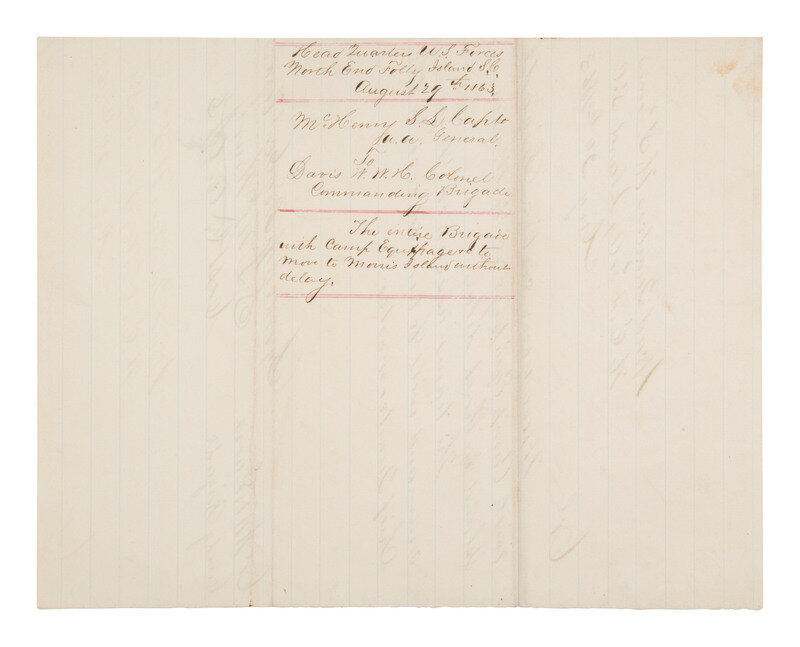 Head Quarters U.S. Forces
North End Folly Island S.C.
August 29th 1863.
McHenry S. L. Capt &
a. a. General.
To
Davis W. W. H. Colonel
Commanding Brigade
The entire Brigade
with Camp Equippage &c to
move to Morris Island without
delay.